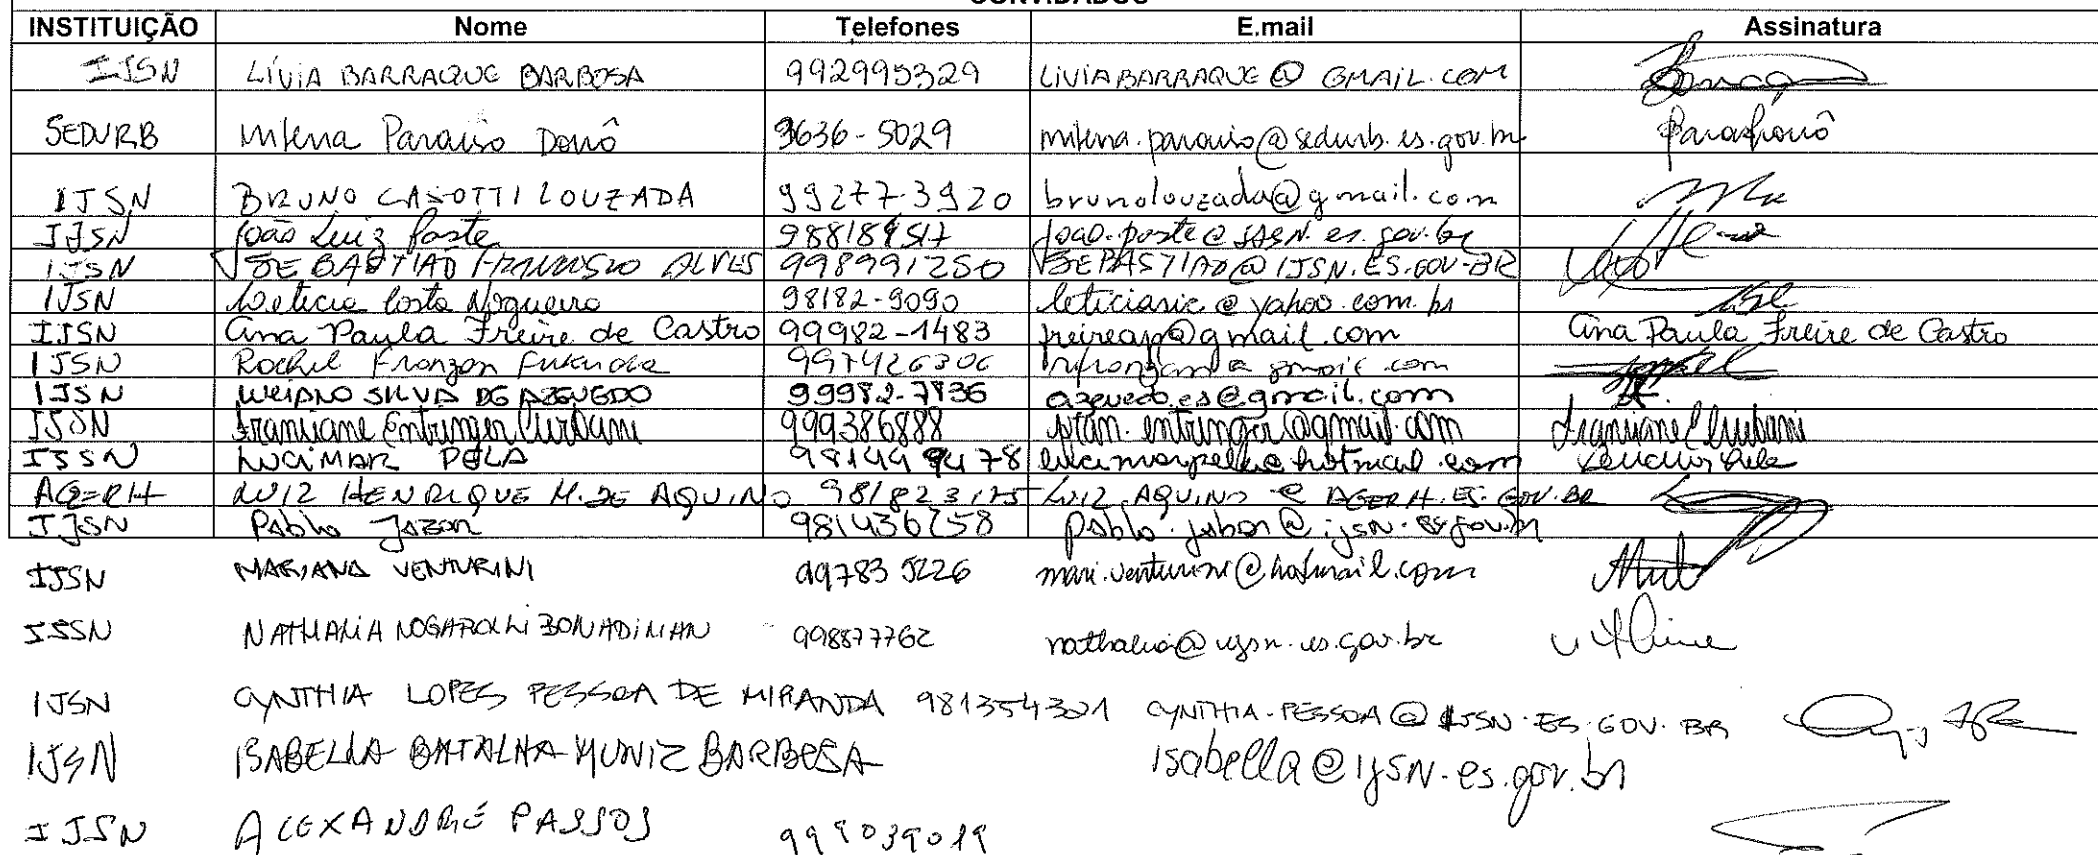 INSTITUIÇÃO Nome Telefones E.mail Assinatura
IJSN LÍVIA BARRAQUE BARBOSA 992995329 LIVIABARRAQUE@GMAIL.COM
SEDURB Milena Paraiso Donô 3636-5029 milena.paraiso@sedurb.es.gov.br
IJSN BRUNO CASOTTI LOUZADA 99277-3920 brunolouzada@gmail.com
IJSN João Luiz Paste
IJSN SEBASTIAO FRANCISCO ALVES 998991250 SEBASTIAO@IJSN.ES.GOV.BR
IJSN Leticia Costa Nogueira 98182-9090 leticiasic@yahoo.com.br
IJSN Ana Paula Freire de Castro 99982-1483 freireap@gmail.com Ana Paula Freire de Castro
IJSN 997426306
IJSN SILVA DE AZEVEDO 99982-7836 azevedo.es@gmail.com
IJSN Entringer 999386888 entringer@gmail.com
IJSN LUCIMAR PELA
AGERH LUIZ HENRIQUE M. DE AQUINO 981823175 LUIZ.AQUINO@AGERH.ES.GOV.BR
IJSN Pablo
IJSN MARIANA VENTURINI 997835226 mari.venturini@hotmail.com
IJSN NATHALIA NOGAROLLI BONADIMAN 998877762 nathalia@ijsn.es.gov.br
IJSN CYNTHIA LOPES PESSOA DE MIRANDA 981354301 CYNTHIA.PESSOA@IJSN.ES.GOV.BR
IJSN ISABELLA BATALHA MUNIZ BARBOSA isabella@ijsn.es.gov.br
IJSN ALEXANDRE PASSOS 999039019